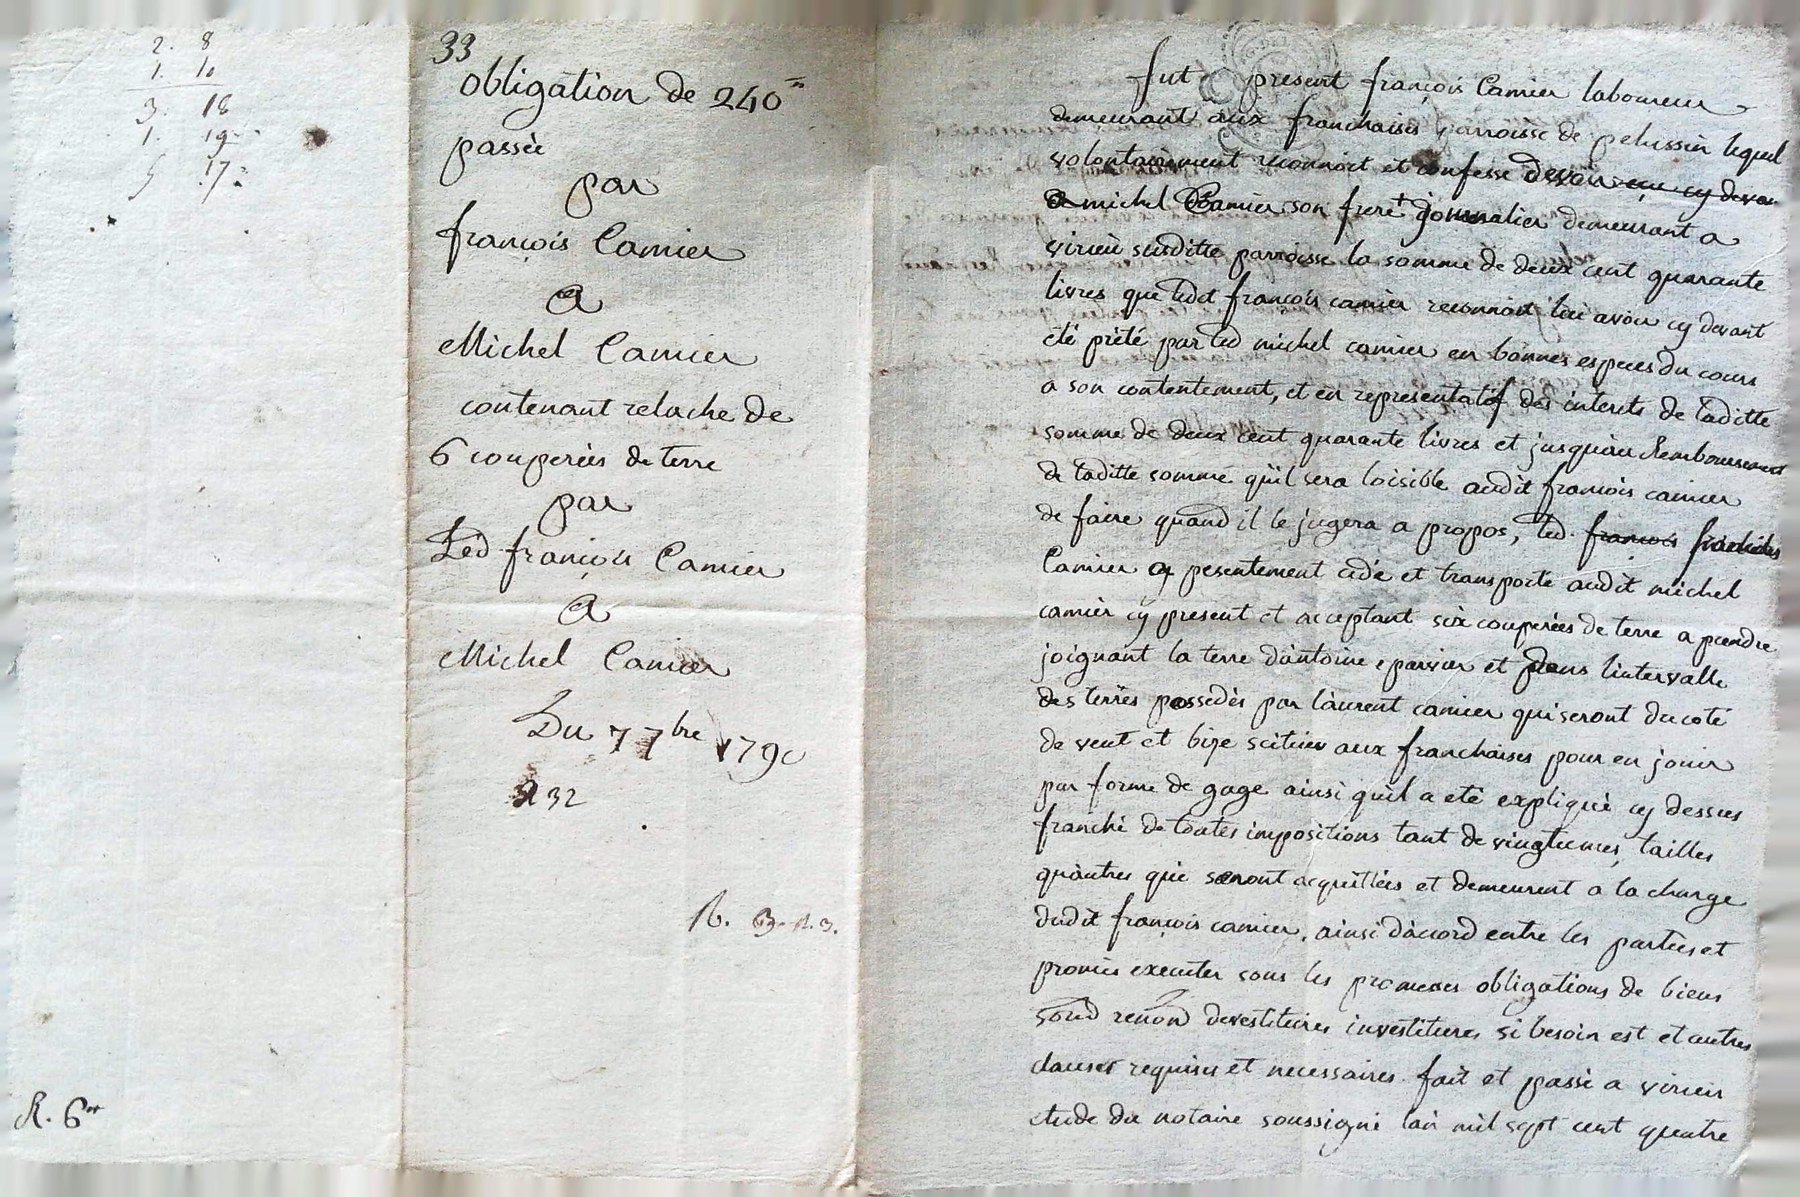 2. 8
1. 10
3. 18
1. 19
5 17
R. 6
33
obligation de 240
passée
par
françois Camier
a
Michel Camier
contenant relache de
6 couperées de terre
par
Led françois Camier
a
Michel Camier
Du 7 7bre 1790
R 32
3.
fut present françois Camier laboureur
demeurant aux franchaises parroisse de pelussin lequel
volontairement reconnoit et confesse devoir cy devan
a michel Camier son frere journalier demeurant a
virieu susditte parroisse la somme de deux cent quarante
livres que ledit françois camier reconnoit lui avoir cy devant
été prété par led michel camier en bonnes especes du cours
a son contentement, et en representatif des interets de laditte
somme de deux cent quarante livres et jusquau Remboursement
de laditte somme qu'il sera loisible audit françois camier
de faire quand il le jugera a propos, led. françois
Camier a pesentement cédé et transporté audit michel
camier cy present et acceptant six couperées de terre a prendre
joignant la terre d'antoine eparvier et dans l'intervalle
des terres possedés par laurent camier qui seront du coté
de vent et bize scitués aux franchaises pour en jouir
par forme de gage ainsi qu'il a eté expliqué cy dessus
franche de toutes impositions tant de vingtiemes, tailles
qu'autres qui seront acquittées et demeurent a la charge
dudit françois camier, ainsi d'accord entre les parties et
promis executer sous les promesses obligations de biens
soud renon devestitures investitures si besoin est et autres
clauses requises et necessaires. fait et passé a virieu
etude du notaire soussigné l'an mil sept cent quatre